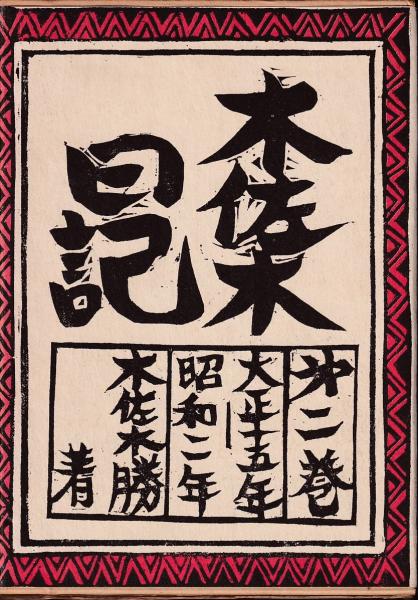 木佐木
日記
第二巻
大正十五年―
昭和二年
木佐木勝
著